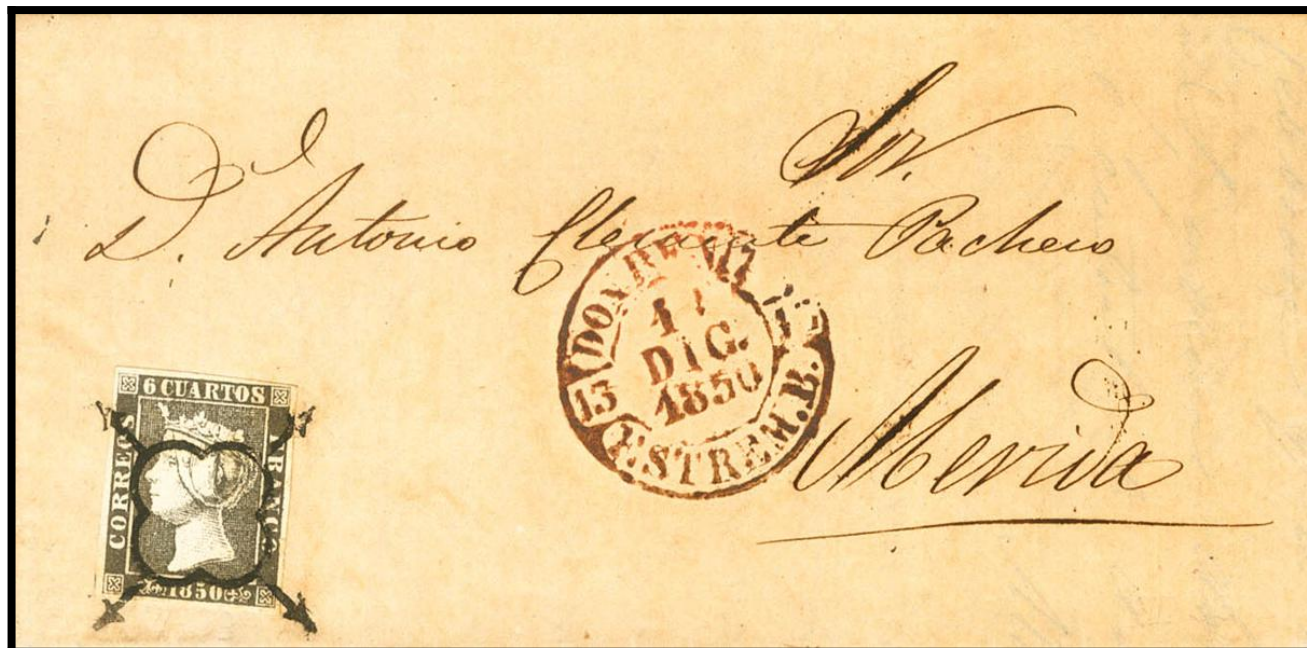 Sor.
D. Antonio Clemente Pacheco
Merida
DON BENIT
DIC.
1850
13
ESTREM.B.
6 CUARTOS
CORREOS
FRANCO
1850